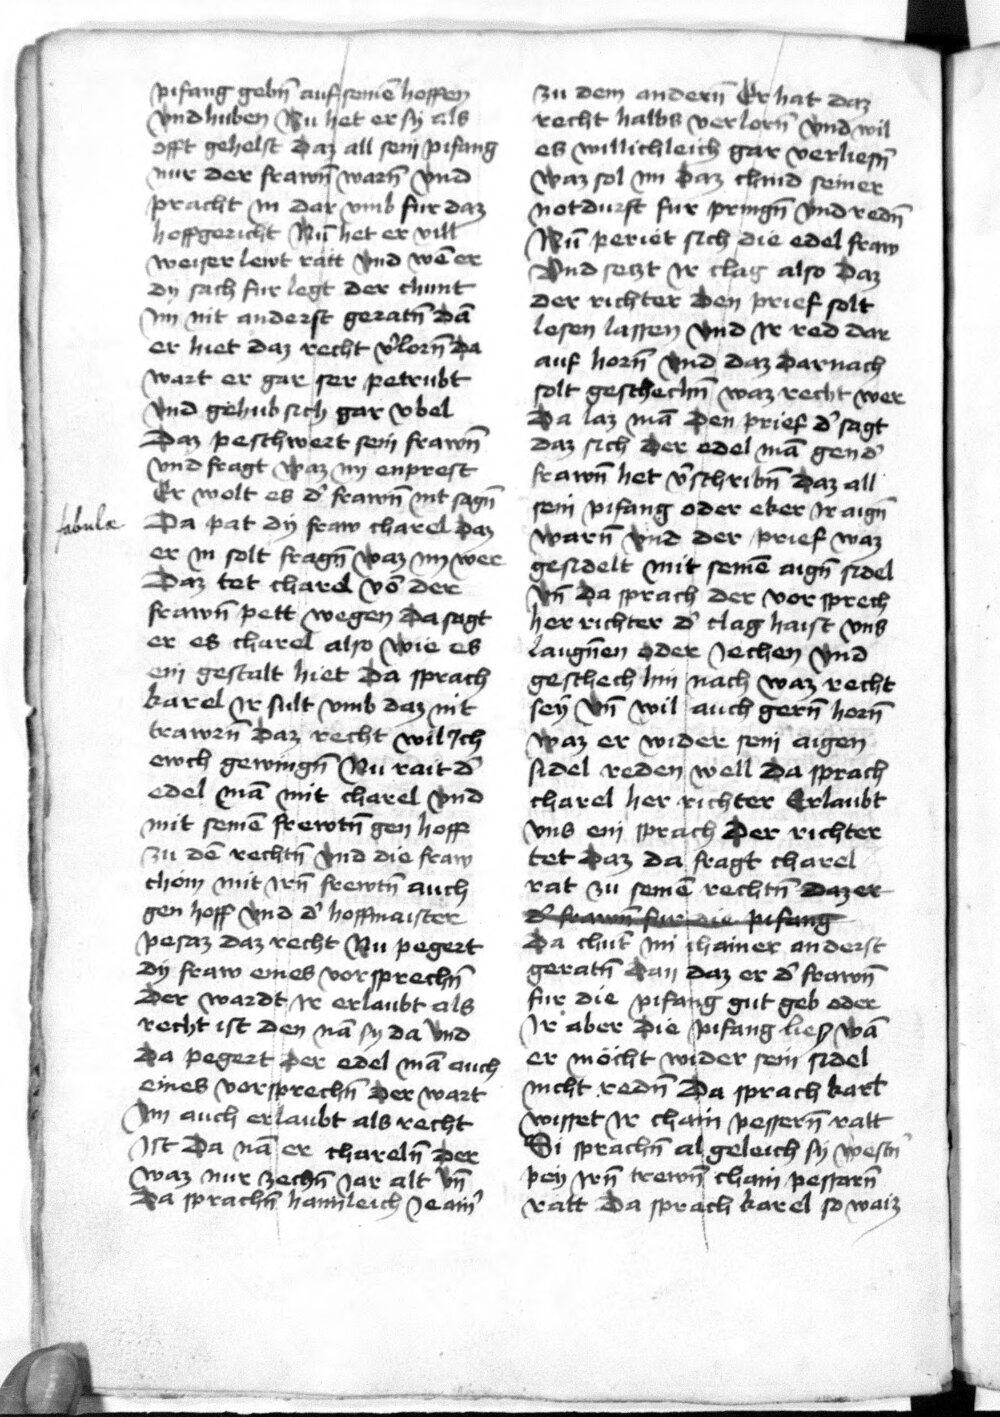 pifang gebn̄ auf seinē hoffen
vnd huben Nu het er sy als
offt gehelst Daz all sein pifang
nur der frawn̄ warn̄ vnd
pracht in dar vmb fur daz
hoffgericht Nū het er vill
weiser lewt rått vnd wē er
dy sach fur legt der chunt
im nit anderst geratn̄ Dā
er hiet daz recht v̓lorn̄ Da
wart er gar ser petrubt
vnd gehub sich gar vbel
Daz peschwert sein frawn̄
vnd fragt waz im enprest
Er wolt es d̓ frawn̄ nit sagn̄
fabulæ
Da pat dy fraw charel daz
er in solt fragn̄ waz im wer
Daz tet charel vō der
frawn̄ pett wegen Da sagt
er es charel also wie es
ein gestalt hiet Da sprach
karel Ir sult vmb daz nit
trawrn̄ Daz recht wil Ich
ewch gewingn̄ Nu rait d̓
edel mā mit charel vnd
mit seinē frewtn̄ gen hoff
zu dē rechtn̄ vnd die fraw
chom mit irn̄ frewtn̄ auch
gen hoff vnd d̓ hoffmaister
pesaz daz recht Nu pegert
dy fraw eines vorsprechn̄
Der wardt ir erlaubt als
recht ist den nā sy da vnd
Da pegert der edel mā auch
eines vorsprechn̄ Der wart
im auch erlaubt als recht
ist Da nā er chareln̄ der
waz nur zechn̄ iar alt vn̄
Da sprachn̄ haimleich ie ain̓
zu dem andern̄ Er hat daz
recht halbs verlorn̄ vnd wil
es willichleich gar verliesn̄
waz sol im Daz chind seiner
notdurft fur pringn̄ vnd redn̄
Nū periet sich die edel fraw
vnd setzt ir clag also Daz
der richter Den prief solt
lesen lassen vnd ir red dar
auf horn̄ vnd daz Darnach
solt geschechn̄ waz recht wer
Da laz mā Den prief d̓ sagt
daz sich der edel mā gen d̓
frawn̄ het v̓schribn̄ Daz all
sein pifang oder eker ir aign̄
warn̄ vnd der prief waz
gesidelt mit seinē aign̄ sidel
vn̄ Da sprach der vorsprech
her richter d̓ clag haist vns
laugn̄en oder iechen vnd
geschech hin nach waz recht
sey vn̄ wil auch gern̄ horn̄
waz er wider sein aigen
sidel reden well Da sprach
charel her richter Erlaubt
vns ein sprach Der richter
tet Daz da fragt charel
rat zu seinē rechtn̄ Daz er
d̓ frawn̄ fur die pifang
Da chūt im chainer anderst
geratn̄ Dan daz er d̓ frawn̄
fur die pifang gut geb oder
ir aber Die pifang liesz wā
er möcht wider sein sidel
nicht redn̄ Da sprach karl
wisset ir chain pessern̄ ratt
Si sprachn̄ al geleich sy westn̓
pey irn̄ trewn̄ chain pessarn̄
ratt Da sprach karel so waiz